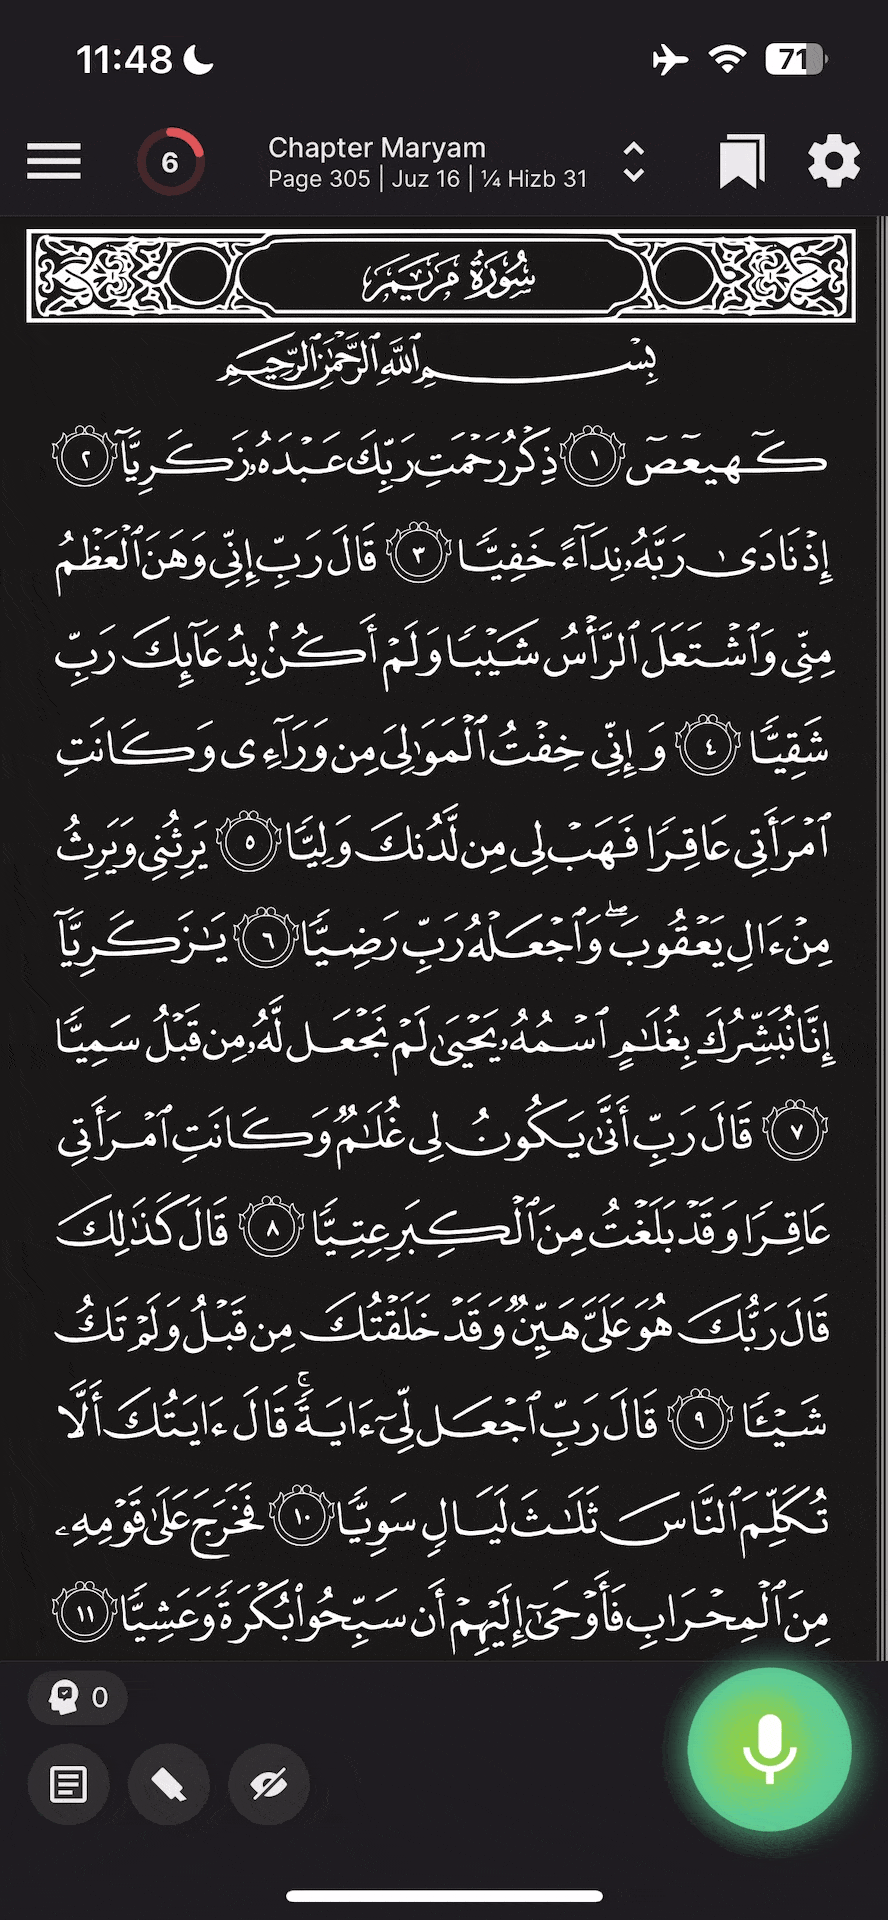 11:48
71
6
Chapter Maryam
Page 305 | Juz 16 | ¼ Hizb 31
سُورَةُ مَرْيَمَ
بِسْمِ ٱللَّهِ ٱلرَّحْمَٰنِ ٱلرَّحِيمِ
كٓهيعٓصٓ ١ ذِكْرُ رَحْمَتِ رَبِّكَ عَبْدَهُۥ زَكَرِيَّآ ٢
إِذْ نَادَىٰ رَبَّهُۥ نِدَآءً خَفِيًّا ٣ قَالَ رَبِّ إِنِّى وَهَنَ ٱلْعَظْمُ
مِنِّى وَٱشْتَعَلَ ٱلرَّأْسُ شَيْبًا وَلَمْ أَكُنۢ بِدُعَآئِكَ رَبِّ
شَقِيًّا ٤ وَإِنِّى خِفْتُ ٱلْمَوَٰلِىَ مِن وَرَآءِى وَكَانَتِ
ٱمْرَأَتِى عَاقِرًا فَهَبْ لِى مِن لَّدُنكَ وَلِيًّا ٥ يَرِثُنِى وَيَرِثُ
مِنْ ءَالِ يَعْقُوبَ ۖ وَٱجْعَلْهُ رَبِّ رَضِيًّا ٦ يَٰزَكَرِيَّآ
إِنَّا نُبَشِّرُكَ بِغُلَٰمٍ ٱسْمُهُۥ يَحْيَىٰ لَمْ نَجْعَل لَّهُۥ مِن قَبْلُ سَمِيًّا
٧ قَالَ رَبِّ أَنَّىٰ يَكُونُ لِى غُلَٰمٌ وَكَانَتِ ٱمْرَأَتِى
عَاقِرًا وَقَدْ بَلَغْتُ مِنَ ٱلْكِبَرِ عِتِيًّا ٨ قَالَ كَذَٰلِكَ
قَالَ رَبُّكَ هُوَ عَلَىَّ هَيِّنٌ وَقَدْ خَلَقْتُكَ مِن قَبْلُ وَلَمْ تَكُ
شَيْـًٔا ٩ قَالَ رَبِّ ٱجْعَل لِّىٓ ءَايَةً ۚ قَالَ ءَايَتُكَ أَلَّا
تُكَلِّمَ ٱلنَّاسَ ثَلَٰثَ لَيَالٍ سَوِيًّا ١٠ فَخَرَجَ عَلَىٰ قَوْمِهِۦ
مِنَ ٱلْمِحْرَابِ فَأَوْحَىٰٓ إِلَيْهِمْ أَن سَبِّحُوا۟ بُكْرَةً وَعَشِيًّا ١١
0